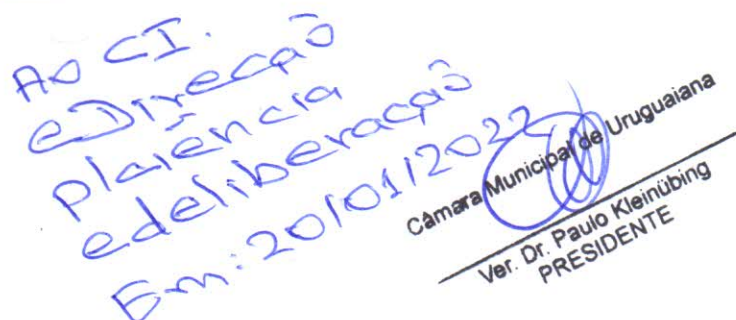 Ao CI.
e Direcçaõ
p/aiência
e deliberaçaõ
Em: 20/01/2022
Câmara Municipal de Uruguaiana
Ver. Dr. Paulo Kleinübing
PRESIDENTE